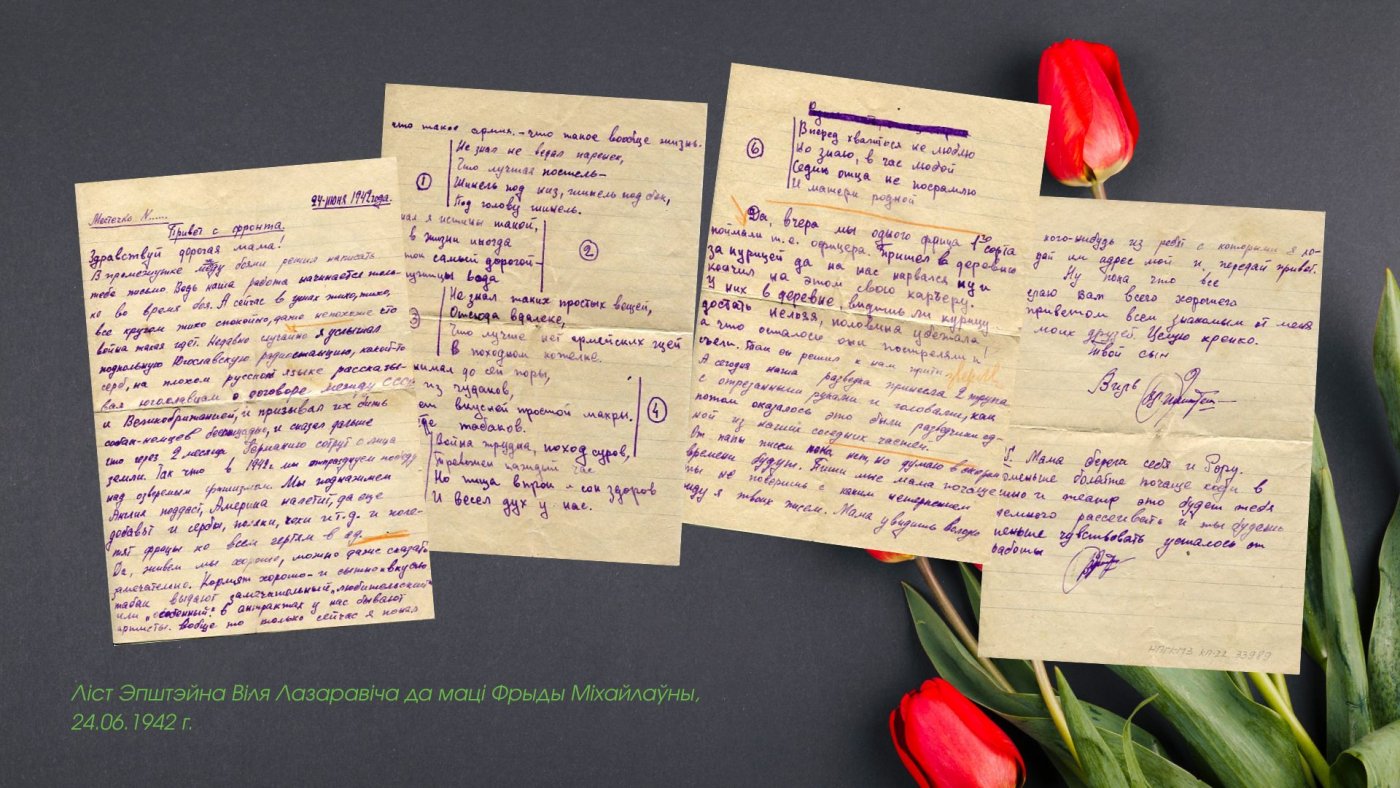 24-июня 1942 года.
Местечко N......
Привет с фронта.
Здравствуй дорогая мама!
В промежутке между боями решил написать
тебе письмо. Ведь наша работа начинается только
ко во время боя. А сейчас в ушах тихо, тихо,
все кругом тихо спокойно, даже непохоже что
война такая идёт. Недавно случайно я услышал
подпольную Югославскую радиостанцию, какой-то
серб, на плохом русском языке рассказы-
вая югославцам о договоре между СССР
и Великобританией, и призывал их бить
собак-немцев беспощадно, и сказал дальше
что через 2 месяца Германию сотрут с лица
земли. Так что в 1942г. мы отпразднуем победу
над озверелым фашизмом. Мы поднажмем
Англия поддаст, Америка налетит, да ещё
добавят и сербы, поляки, чехи и т.д. и поле-
тят фрицы ко всем чертям в ад.
Да, живем мы хорошо, можно даже сказать
замечательно. Кормят хорошо и сытно и вкусно
табак выдают замечательный „любительский“
или „особенный“. В антрактах у нас бывают
артисты. Вообще то только сейчас я понял
что такое армия. - что такое вообще жизнь.
1
Не знал не ведал паренек,
Что лучшая постель-
Шинель под низ, шинель под бок,
Под голову шинель.
2
нал я истины такой,
в жизни иногда
ток самый дорогой
вода
3
Не знал таких простых вещей,
Отсюда вдалеке,
Что лучше нет армейских щей
В походном котелке.
4
нимал до сей поры,
из чудаков,
ем вкусней простой махры.
где табаков.
Война трудна, поход суров,
Тревожен каждый час
Но пища впрок и сон здоров
И весел дух у нас.
6
Вперед хвалиться не люблю
Но знаю, в час любой
Седин отца не посрамлю
И матери родной
Да, вчера мы одного фрица 1го сорта
поймали т.е. офицера. Пришел в деревню
за курицей да на нас нарвался ну и
кончил на этом свою карьеру.
У них в деревне, видишь ли курицу
достать нельзя, половина убежала
а что осталось они постреляли и
съели. Там он решил к нам прийти
А сегодня наша разведка принесла 2 трупа
с отрезанными руками и головами, как
потом оказалось это были разведчики од-
ной из наших соседних частей.
От папы писем пока нет, но думаю в скором
времени будут. Пиши мне мама почаще
ты не поверишь с каким нетерпением
жду я твоих писем. Мама увидишь Володю
кого-нибудь из ребят с которыми я
дай им адрес мой и передай привет.
Ну пока что все
елаю вам всего хорошего
приветом всем знакомым от меня
моих друзей. Целую крепко.
твой сын
Виль
Мама береги себя и Розу.
оменьше болейте почаще ходи в
кино и театр это будет тебя
немного рассеивать и ты будешь
меньше чувствовать усталость от
работы
НПГКМЗ КП-22 33989
Ліст Эпштэйна Віля Лазаравіча да маці Фрыды Міхайлаўны,
24.06.1942 г.